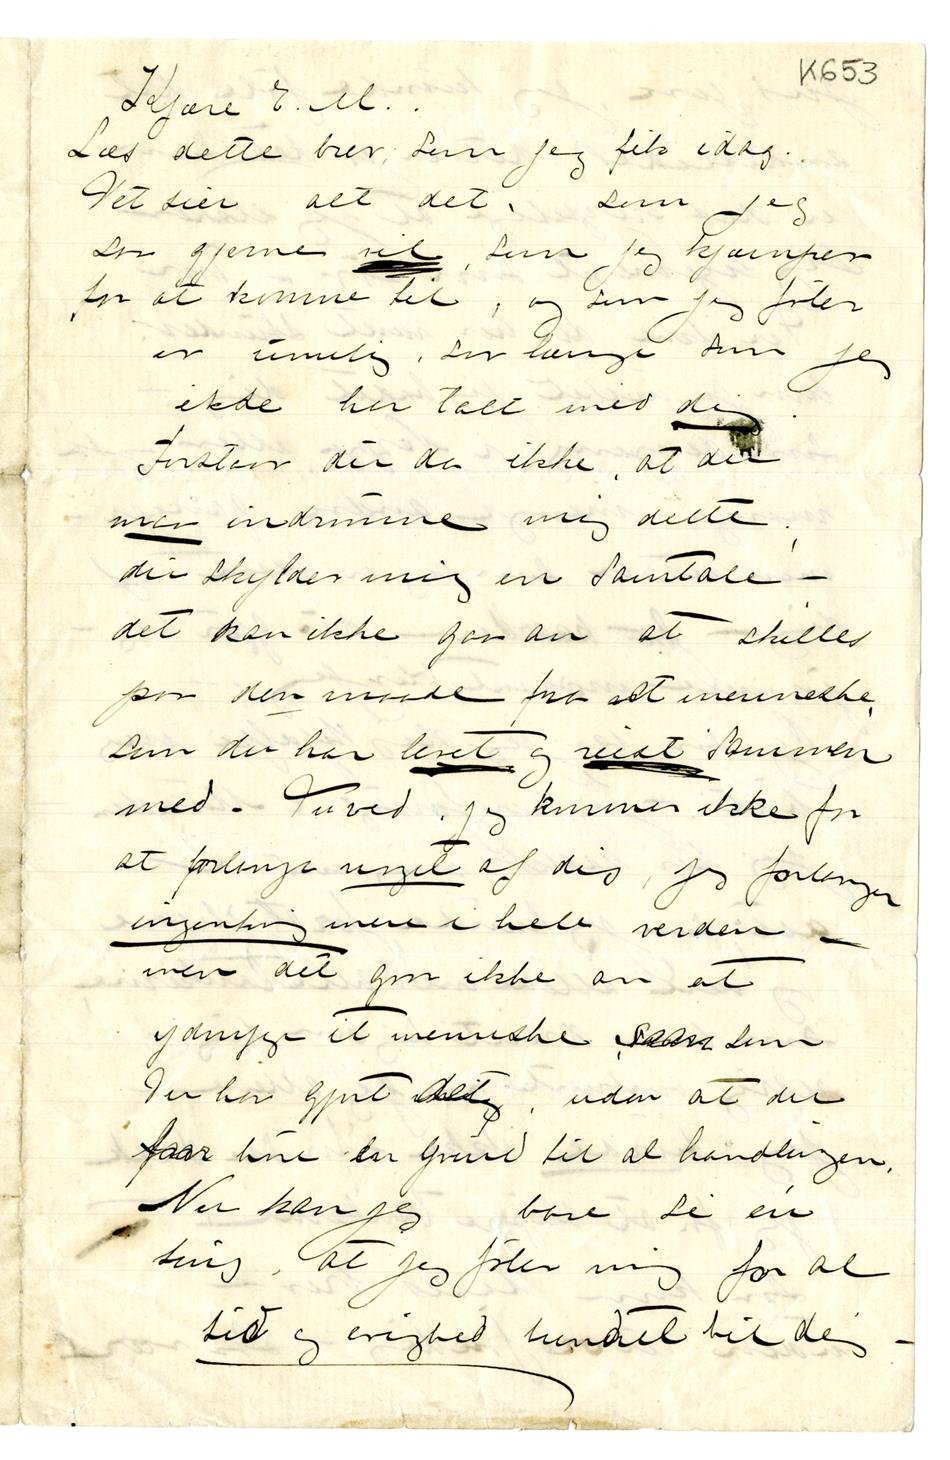 K653
Kjære E. M..
Læs dette brev, som jeg fik idag.
Det sier alt det, som jeg
saa gjerne vil, som jeg kjæmper
for at komme til, og som jeg föler
er umulig, saa længe som jeg
ikke har talt med dig.
Forstaar du da ikke, at du
maa indrømme mig dette,
du skylder mig en Samtale –
det kan ikke gaa an at skilles
paa den maade fra et menneske,
som du har levet og reist Sammen
med – Du ved, jeg kommer ikke for
at forlange noget af dig, jeg forlanger
ingenting mere i hele verden –
men det gaar ikke an at
et menneske saan som
Du har gjort, uden at du
faar höre en Grund til al handlingen.
Nu kan jeg bare si én
ting, at jeg föler mig for al
tid og evighed bundet til dig –